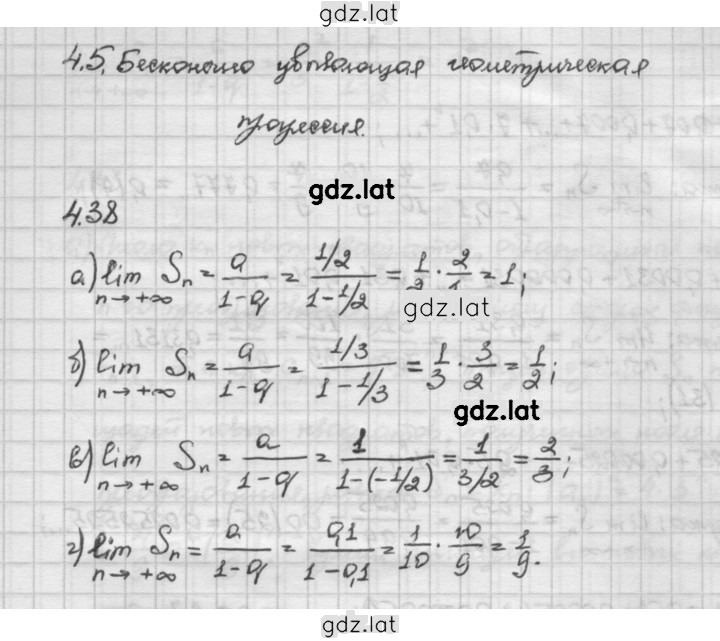 gdz.lat
4.5. Бесконечно убывающая геометрическая
прогрессия.
gdz.lat
4.38
а) lim n→+∞ Sₙ = a/(1-q) = (1/2)/(1-1/2) = 1/2 · 2/1 = 1;
gdz.lat
б) lim n→+∞ Sₙ = a/(1-q) = (1/3)/(1-1/3) = 1/3 · 3/2 = 1/2;
gdz.lat
в) lim n→+∞ Sₙ = a/(1-q) = 1/(1-(-1/2)) = 1/(3/2) = 2/3;
г) lim n→+∞ Sₙ = a/(1-q) = 0,1/(1-0,1) = 1/10 · 10/9 = 1/9.
gdz.lat